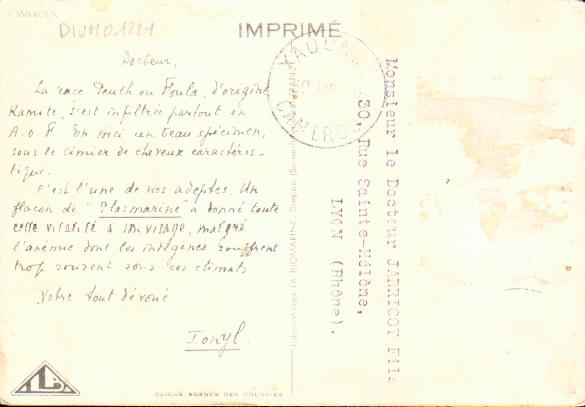 CAMEROUN
IMPRIMÉ
Docteur,
La race Peulh ou Foula, d'origine
Kamite, s'est infiltrée partout en
A.O.F. En voici un beau spécimen,
sous le cimier de cheveux caractéris-
tique.
C'est l'une de nos adeptes. Un
flacon de "Plasmarine" a donné toute
cette vitalité à son visage, malgré
l'anémie dont les indigènes souffrent
trop souvent sous ces climats.
Votre tout dévoué :
Ionyl.
CLICHÉ AGENCE DES COLONIES
Laboratoires LA BIOMARINE, Dieppe
YAOUNDE
CAMEROUN
Monsieur le Docteur JARRICOT Fils
30, Rue Sainte-Hélène,
LYON (Rhône).